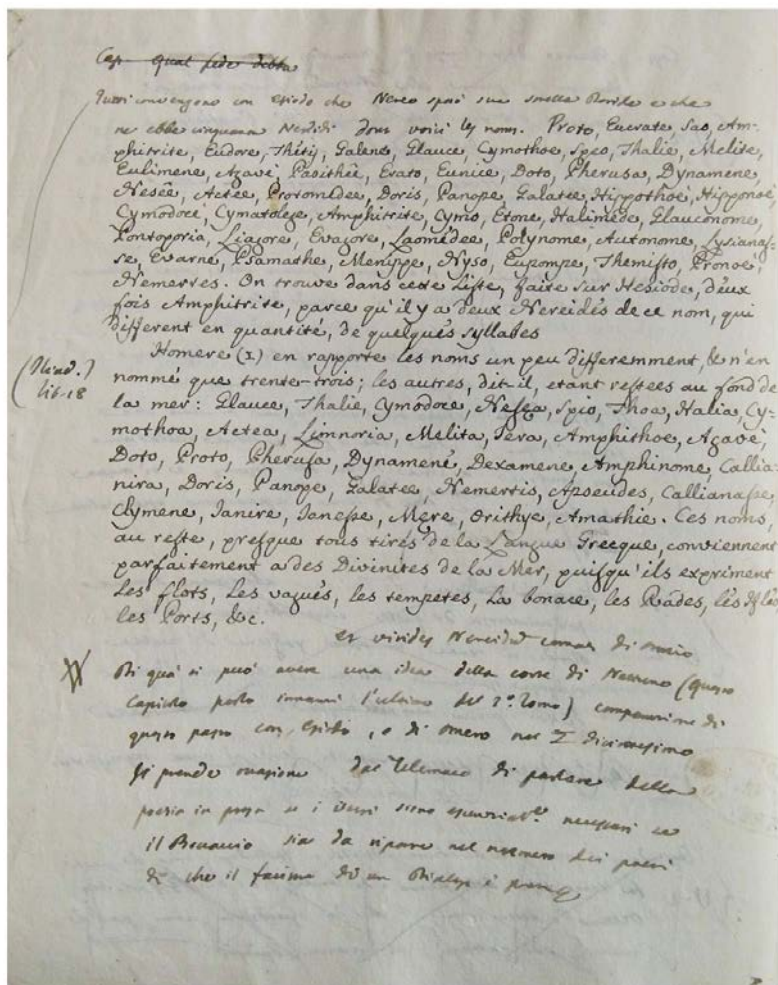 Cap. qual fede debba
Tutti convengono con Esiodo che Nereo sposò sua sorella Doride e che
ne ebbe cinquanta Nereidi dont voici les noms. Proto, Eucrate, Sao, Am-
phitrite, Eudore, Thétis, Galene, Glauce, Cymothoe, Spio, Thalie, Melite,
Eulimene, Agavé, Pasithée, Erato, Eunice, Doto, Pherusa, Dynamene,
Nesée, Actée, Protomedée, Doris, Panope, Galatée, Hippothoé, Hipponoé,
Cymodoce, Cymatolege, Amphitrite, Cymo, Etone, Halimede, Glauconome,
Pontoporia, Liagore, Evagore, Laomédee, Polynome, Autonome, Lysianas-
se, Evarne, Psamathe, Menippe, Nyso, Eupompe, Themisto, Pronoé,
Nemertes. On trouve dans cette Liste, faite sur Hesiode, deux
fois Amphitrite, parce qu'il y a deux Nereides de ce nom, qui
different en quantité, de quelques syllabes
Homere (1) en rapporte les noms un peu differemment, & n'en
(Iliad.)
lib. 18
nommé que trente-trois; les autres, dit-il, etant restees au fond de
la mer: Glauce, Thalie, Cymodoce, Nesea, Spio, Thoa, Halia, Cy-
mothoa, Actea, Limnoria, Melita, Jera, Amphithoe, Agavé,
Doto, Proto, Pherusa, Dynamené, Dexamene, Amphinome, Callia-
nira, Doris, Panope, Galatee, Nemertis, Apseudes, Callianasse,
Clymene, Janire, Janesse, Mere, Orithye, Amathie. Ces noms,
au reste, presque tous tirés de la Langue Grecque, conviennent
parfaitement a des Divinites de la Mer, puisqu'ils expriment
Les flots, Les vagues, les tempetes, La bonace, les Rades, les Isles
les Ports, &c.
et virides Nereidum comas di Orazio
Di quà si può avere una idea della corte di Nettuno (questo
capitolo posto innanzi l'ultimo del 2.º Tomo) comparazione di
questo passo con Esiodo, e di Omero nel Σ diciottesimo
Si prende occasione dal Telemaco di parlare della
poesia in prosa se i versi sieno necessari se
il Boccaccio sia da riporre nel numero dei poeti
di che il